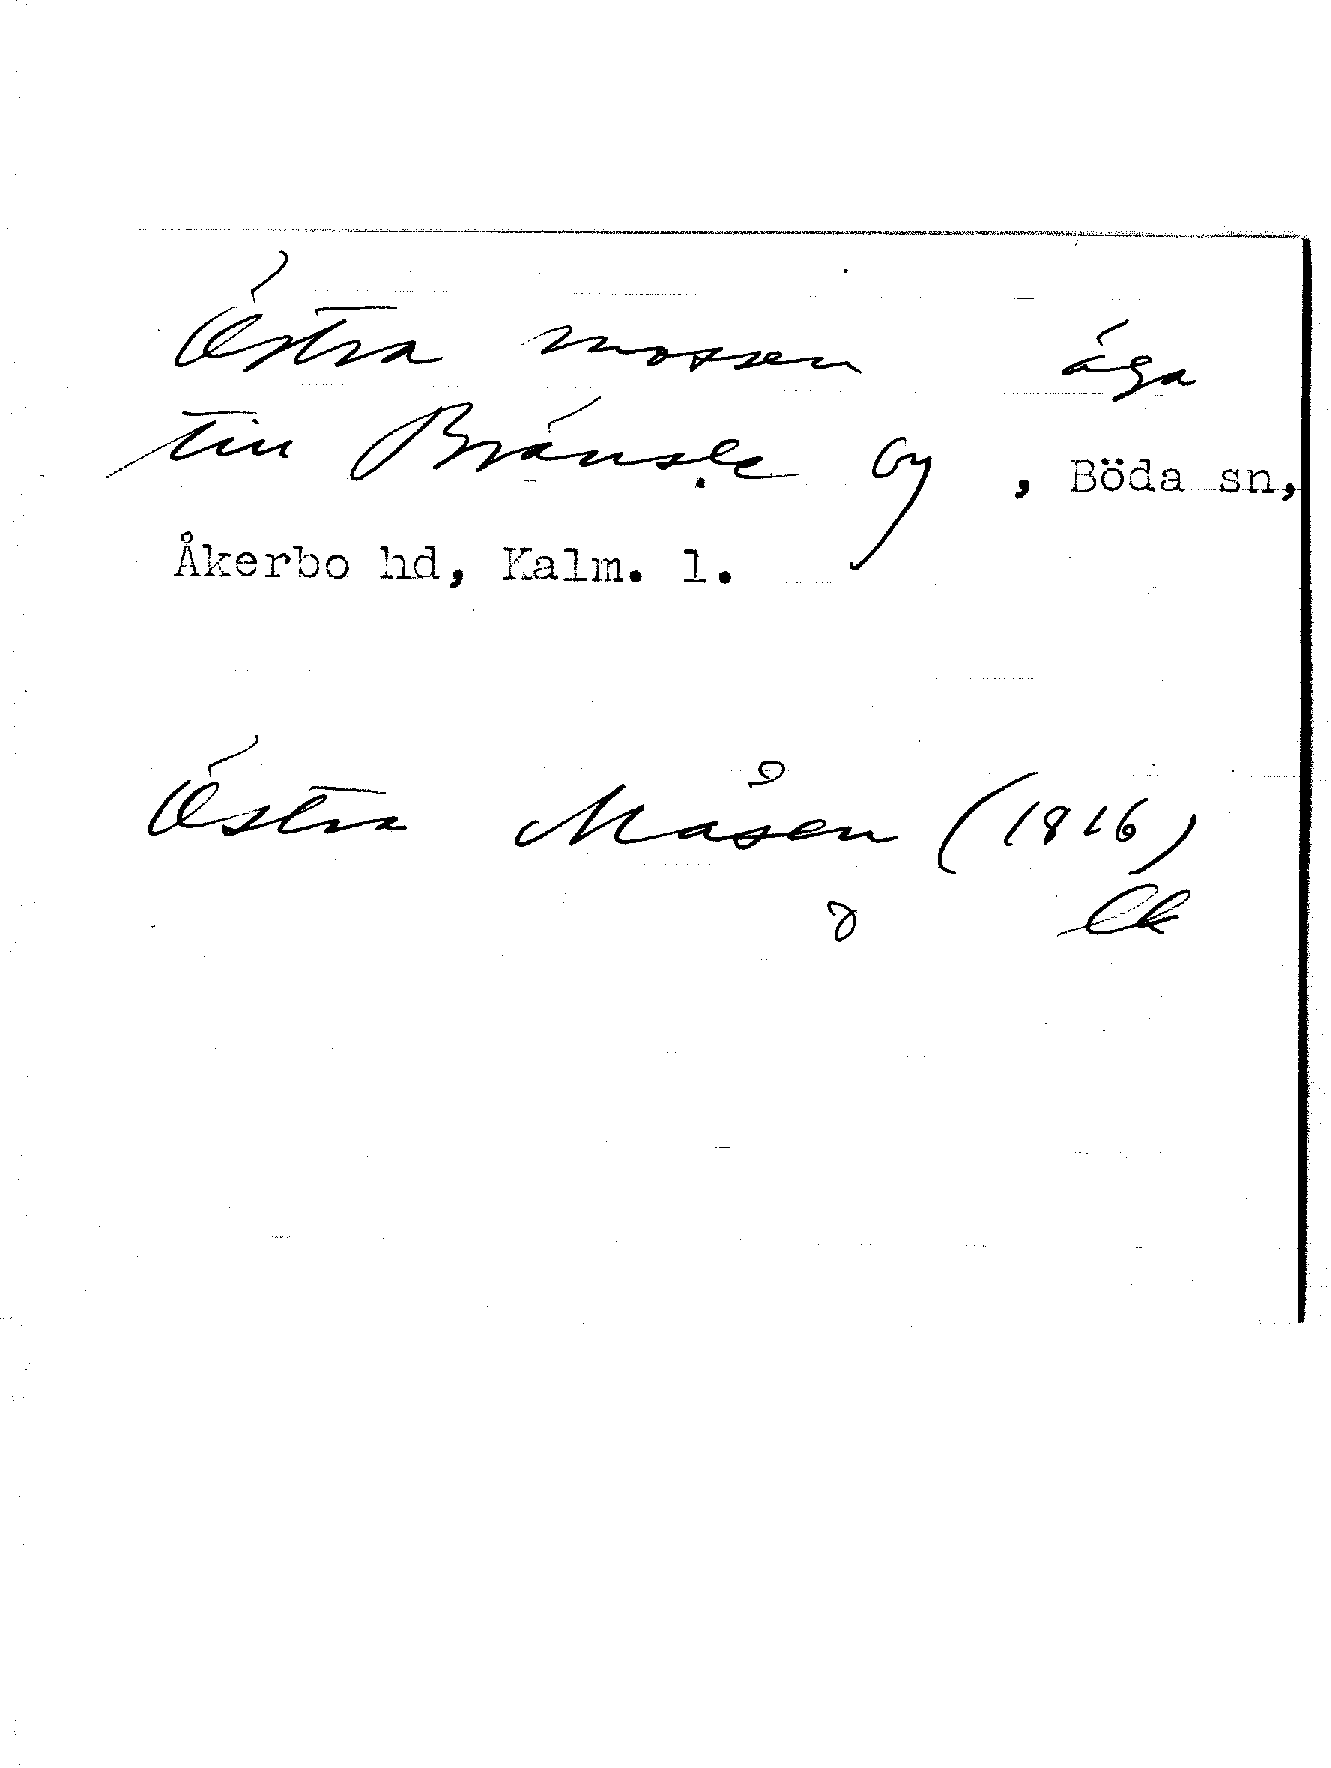 Östra mossen äga
till Bränsle by, Böda sn,
Åkerbo hd, Kalm. l.
Östra Måsen (1816)
lk